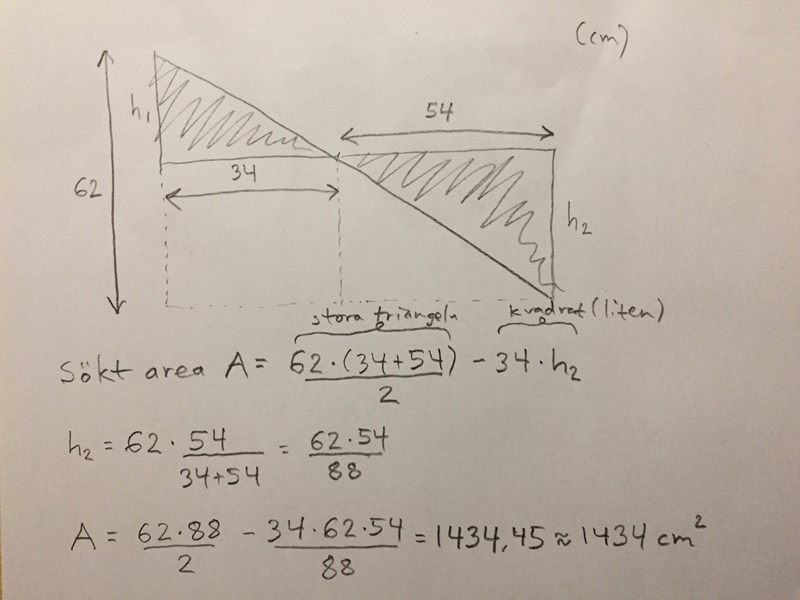 (cm)
h₁
54
34
62
h₂
stora triangeln kvadrat (liten)
Sökt area A = 62·(34+54)/2 - 34·h₂
h₂ = 62·54/(34+54) = 62·54/88
A = 62·88/2 - 34·62·54/88 = 1434,45 ≈ 1434 cm²